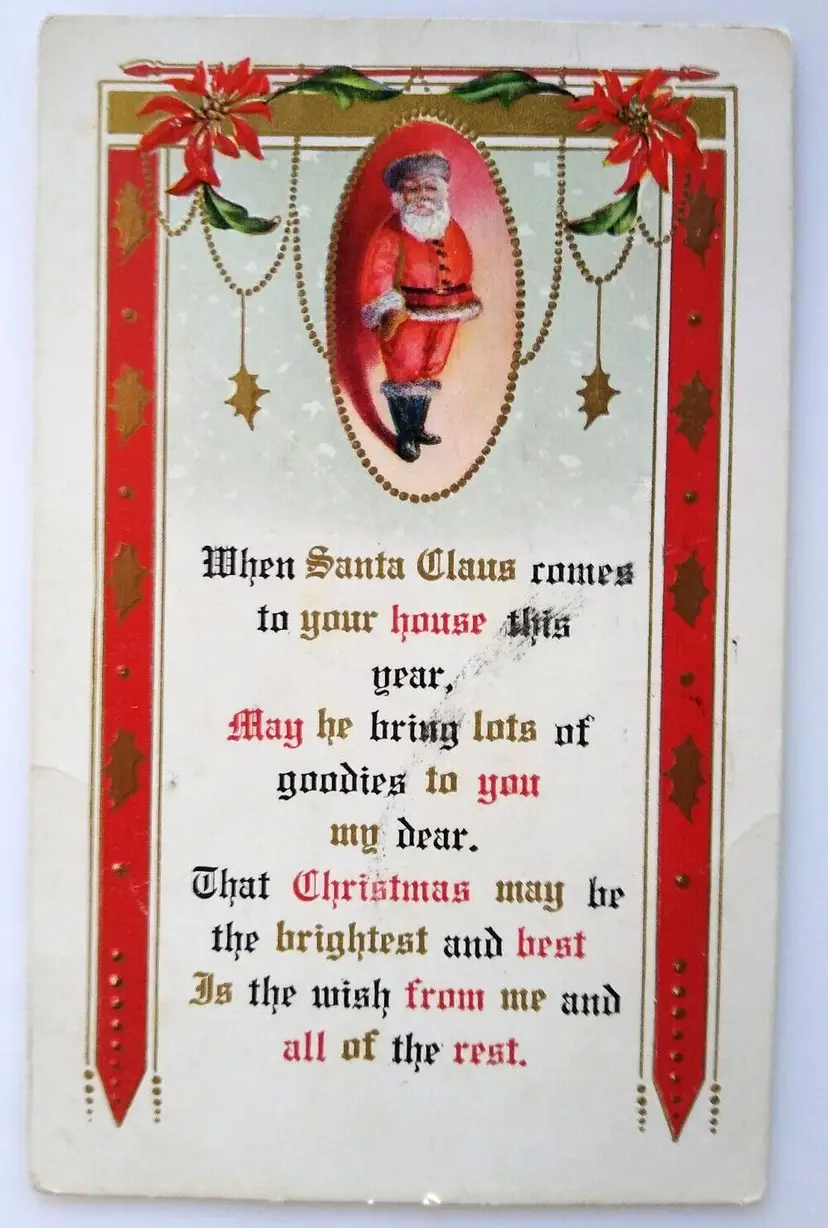 When Santa Claus comes
to your house this
year,
May he bring lots of
goodies to you
my dear.
That Christmas may be
the brightest and best
Is the wish from me and
all of the rest.